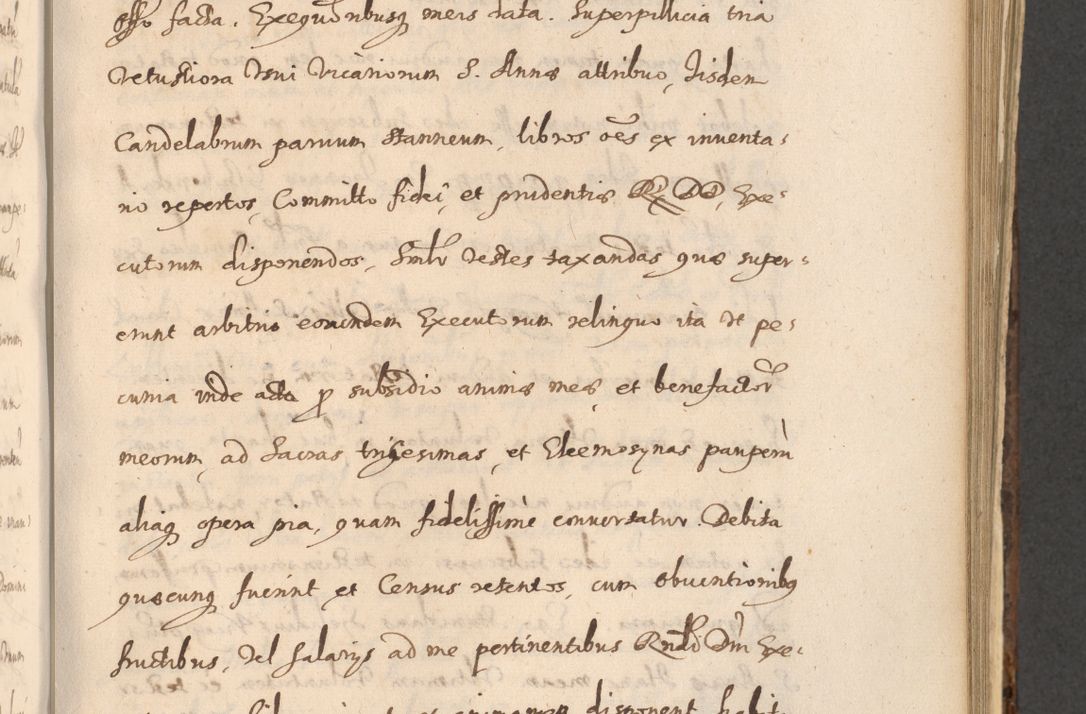 facta. Exequutoribusq meis data. Superpillicia tria
vetustiora Usui Vicariorum S. Annæ attribuo, Jisdem
Candelabrum parvum stanneum, libros oēs ex inventa-
rio repertos, Committo fidei, et prudentiæ RR DD, Exe-
cutorum disponendos, Smlr vestes taxandas quæ super-
erunt arbitrio eorundem Executorum relinquo ità vt pe-
cunia inde acta p subsidio animæ meæ, et benefactor
meorum, ad Sacras trigesimas, et Eleemosynas pauperū
aliaq opera pia, quam fidelissimè convertatur. Debita
quæcunq fuerint et Census retentos, cum obventionibq
fructibus, vel salarijs ad me pertinentibus Rndi Dni Exe-
animarum disponent